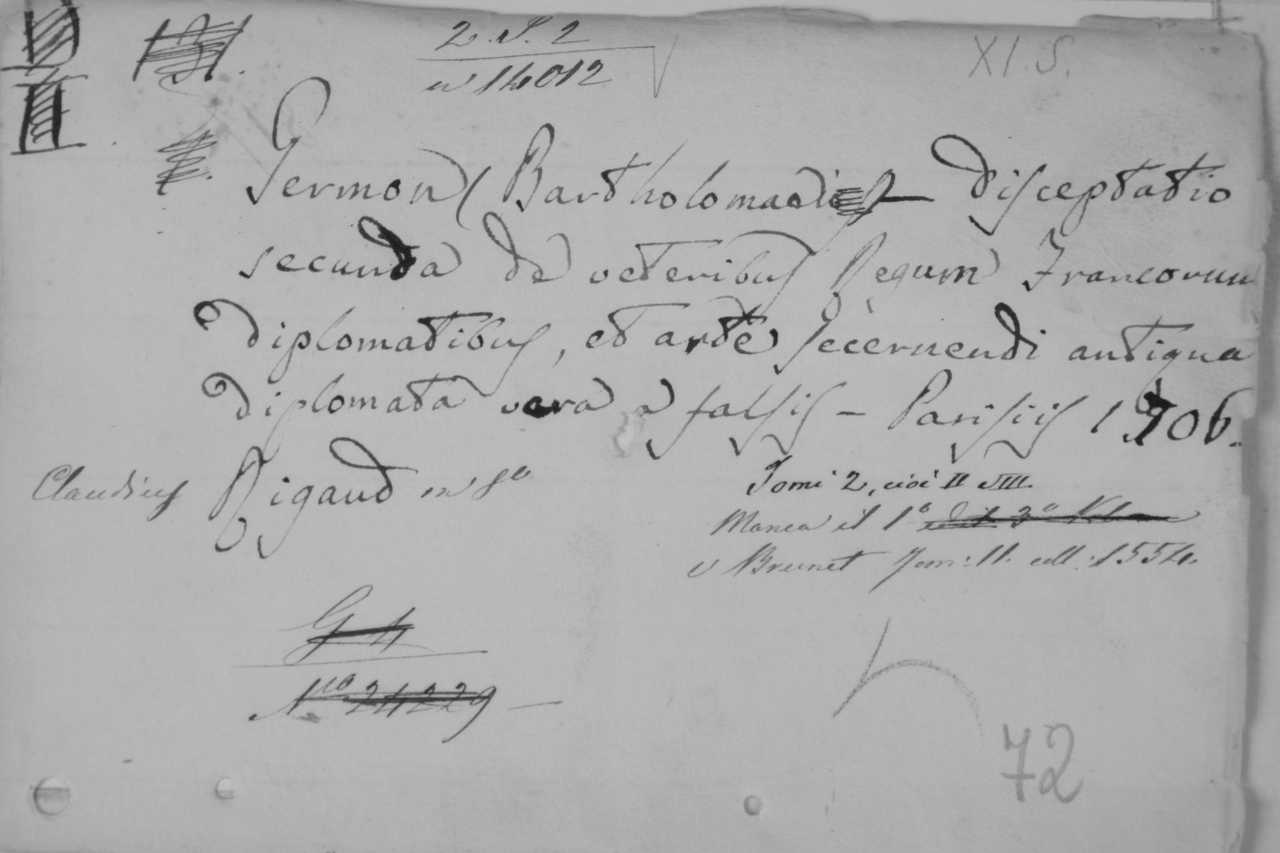 2. S. 2
n 14012
XI. S.
Germon Bartholomaei — Disceptatio
secunda de veteribus Regum Francorum
diplomatibus, et arte secernendi antiqua
diplomata vera a falsis — Parisiis 1706.
Claudius Rigaud in 8o
Tomi 2, cioè II e III.
Manca il 1o
v Brunet Tom: II. coll: 1554.
G 4
Nro 24229 —
72